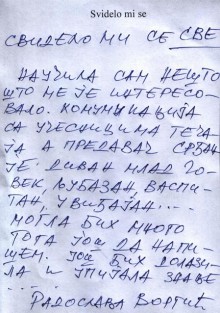 Svidelo mi se
СВИДЕЛО МИ СЕ СВЕ
НАУЧИЛА САМ НЕШТО
ШТО МЕ ЈЕ ИНТЕРЕСО-
ВАЛО. КОМУНИКАЦИЈА
СА УЧЕСНИЦИМА ТЕЧА
ЈА А ПРЕДАВАЧ СРЂАН
ЈЕ ДИВАН МЛАД ЧО-
ВЕК, ЉУБАЗАН, ВАСПИ-
ТАН, УВИЂАЈАН...
МОГЛА БИХ МНОГО
ТОГА ЈОШ ДА НАПИ-
ШЕМ. ЈОШ БИХ ДОЛАЗИ
ЛА И УПИЈАЛА
...
РАДОСЛАВА